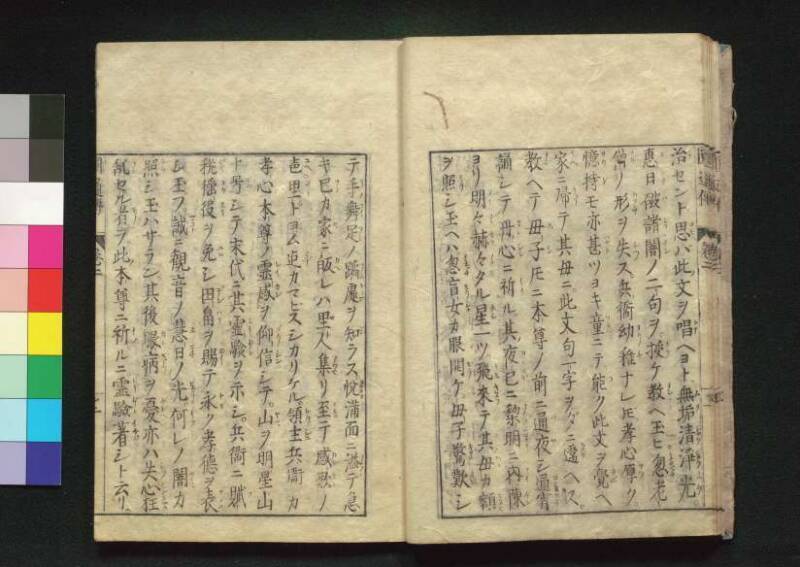 治セント思ハ此文ヲ唱ヘヨト無垢清浄光
惠日破諸闇ノ二句ヲ挾ケ教ヘ玉ヒ忽老
僧ノ形ヲ失ス兵衛幼稚ナレ𪜈孝心厚ク
憶持モ亦甚ツヨキ童ニテ能ク此文ヲ覺ヘ
家ニ帰テ其母ニ此文句一字ヲタニ違ヘス
教ヘテ母子𪜈ニ本尊ノ前ニ通夜シ誦
誦シテ丹心ニ祈ル其夜已ニ黎明ニ内陳
ヨリ明々赫々タル星一ツ飛来テ其母カ額
ヲ照シ玉ヘハ忽盲女カ眼開ケ母子驚歎シ
テ手舞足ノ蹈處ヲ知ラス悅滿面ニ溢テ急
キ已カ家ニ皈レハ里人集リ至テ感歎ノ
邑里トヨム迠カマヒスシカリケル領主兵衛カ
孝心本尊ノ靈感ヲ仰信シテ山ヲ明星山
ト号シテ末代ニ其霊驗ヲ示シ兵衛ニ賦
税徭役ヲ免シ田畠ヲ賜テ永ク孝德ヲ表
シ玉フ誠ニ觀音ノ慧日ノ光何レノ闇カ
照シ玉ハサラン其後眼病ヲ憂亦ハ失心狂
乱セル者ヲ此本尊ニ祈ルニ霊驗著シト云リ